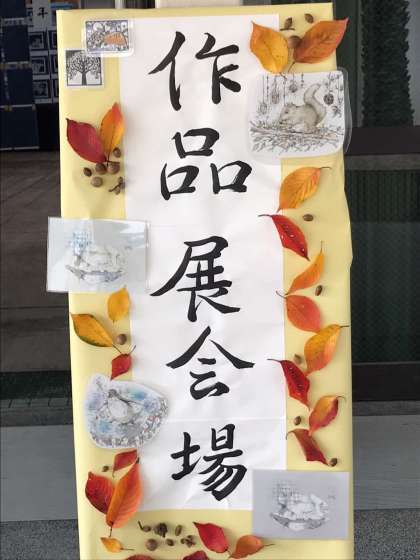 作品展会場